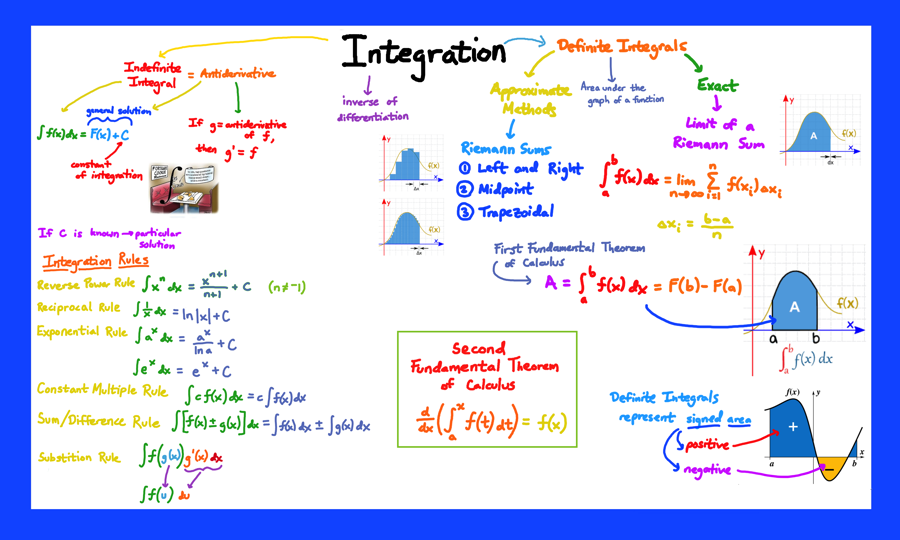 Integration
inverse of
differentiation
Indefinite
Integral = Antiderivative
general solution
∫f(x)dx = F(x) + C
constant
of integration
If g = antiderivative
of f,
then g' = f
If C is known → particular
solution
Integration Rules
Reverse Power Rule ∫xⁿ dx = xⁿ⁺¹/n+1 + C (n≠-1)
Reciprocal Rule ∫1/x dx = ln|x| + C
Exponential Rule ∫aˣ dx = aˣ/ln a + C
∫eˣ dx = eˣ + C
Constant Multiple Rule ∫c f(x) dx = c∫f(x) dx
Sum/Difference Rule ∫[f(x) ± g(x)] dx = ∫f(x) dx ± ∫g(x) dx
Substition Rule ∫f(g(x)) g'(x) dx
∫f(u) du
Definite Integrals
Approximate
Methods
Area under the
graph of a function
Exact
Riemann Sums
① Left and Right
② Midpoint
③ Trapezoidal
f(x)
Δx
x
f(x)
Δx
x
Limit of a
Riemann Sum
∫ₐᵇ f(x) dx = lim n→∞ Σᵢ₌₁ⁿ f(xᵢ) Δxᵢ
Δxᵢ = b-a/n
y
A
f(x)
x
dx
First Fundamental Theorem
of Calculus
A = ∫ₐᵇ f(x) dx = F(b) - F(a)
y
A
f(x)
x
a b
∫ₐᵇ f(x) dx
Second
Fundamental Theorem
of Calculus
d/dx (∫ₐˣ f(t) dt) = f(x)
Definite Integrals
represent signed area
positive
negative
f(x) y
+
a
b x
−